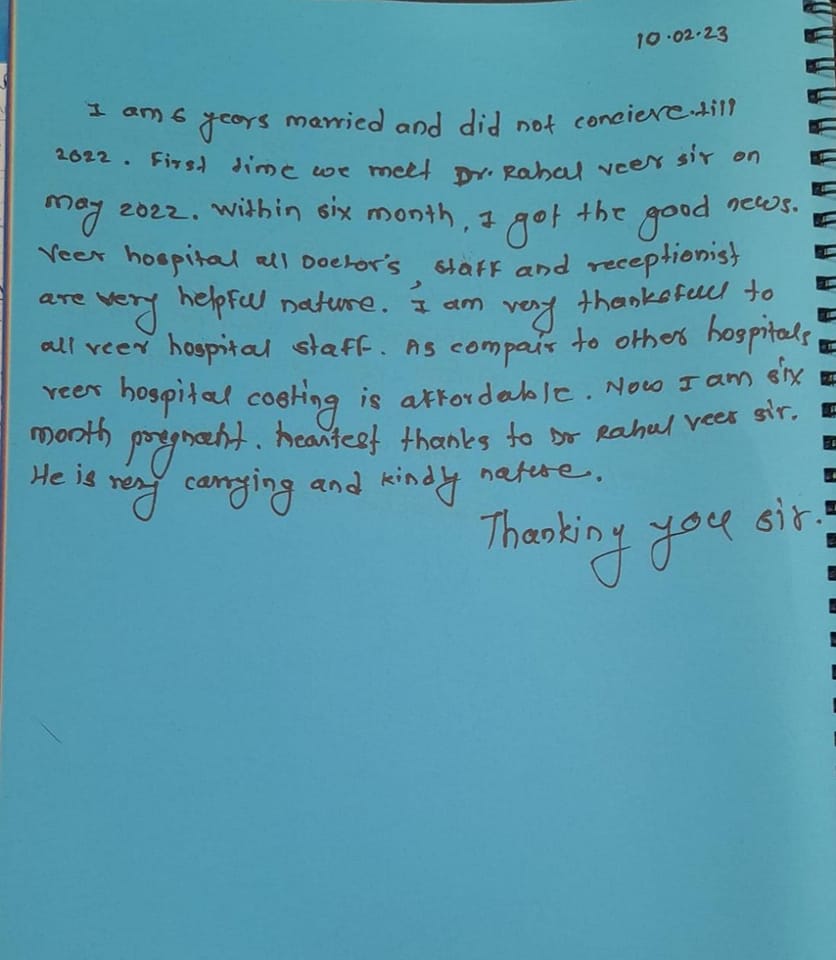 10.02.23
I am 6 years married and did not concieve till
2022. First time we meet Dr. Rahul veer sir on
may 2022. Within six month, I got the good news.
Veer hospital all Doctor's, staff and receptionist
are very helpful nature. I am very thanksfull to
all veer hospital staff. As compair to other hospitals
veer hospital costing is affordable. Now I am six
month pregnant. heartest thanks to Dr Rahul veer sir.
He is very carrying and kindly nature.
Thanking you sir.